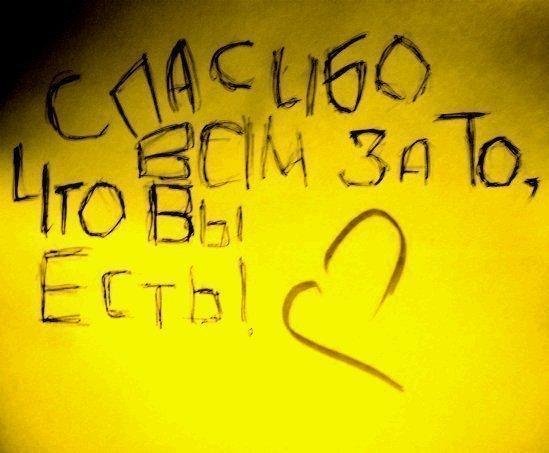 СПАСЫБО
ВСІМ ЗА ТО,
ЧТО ВЫ
ЕСТЬ!